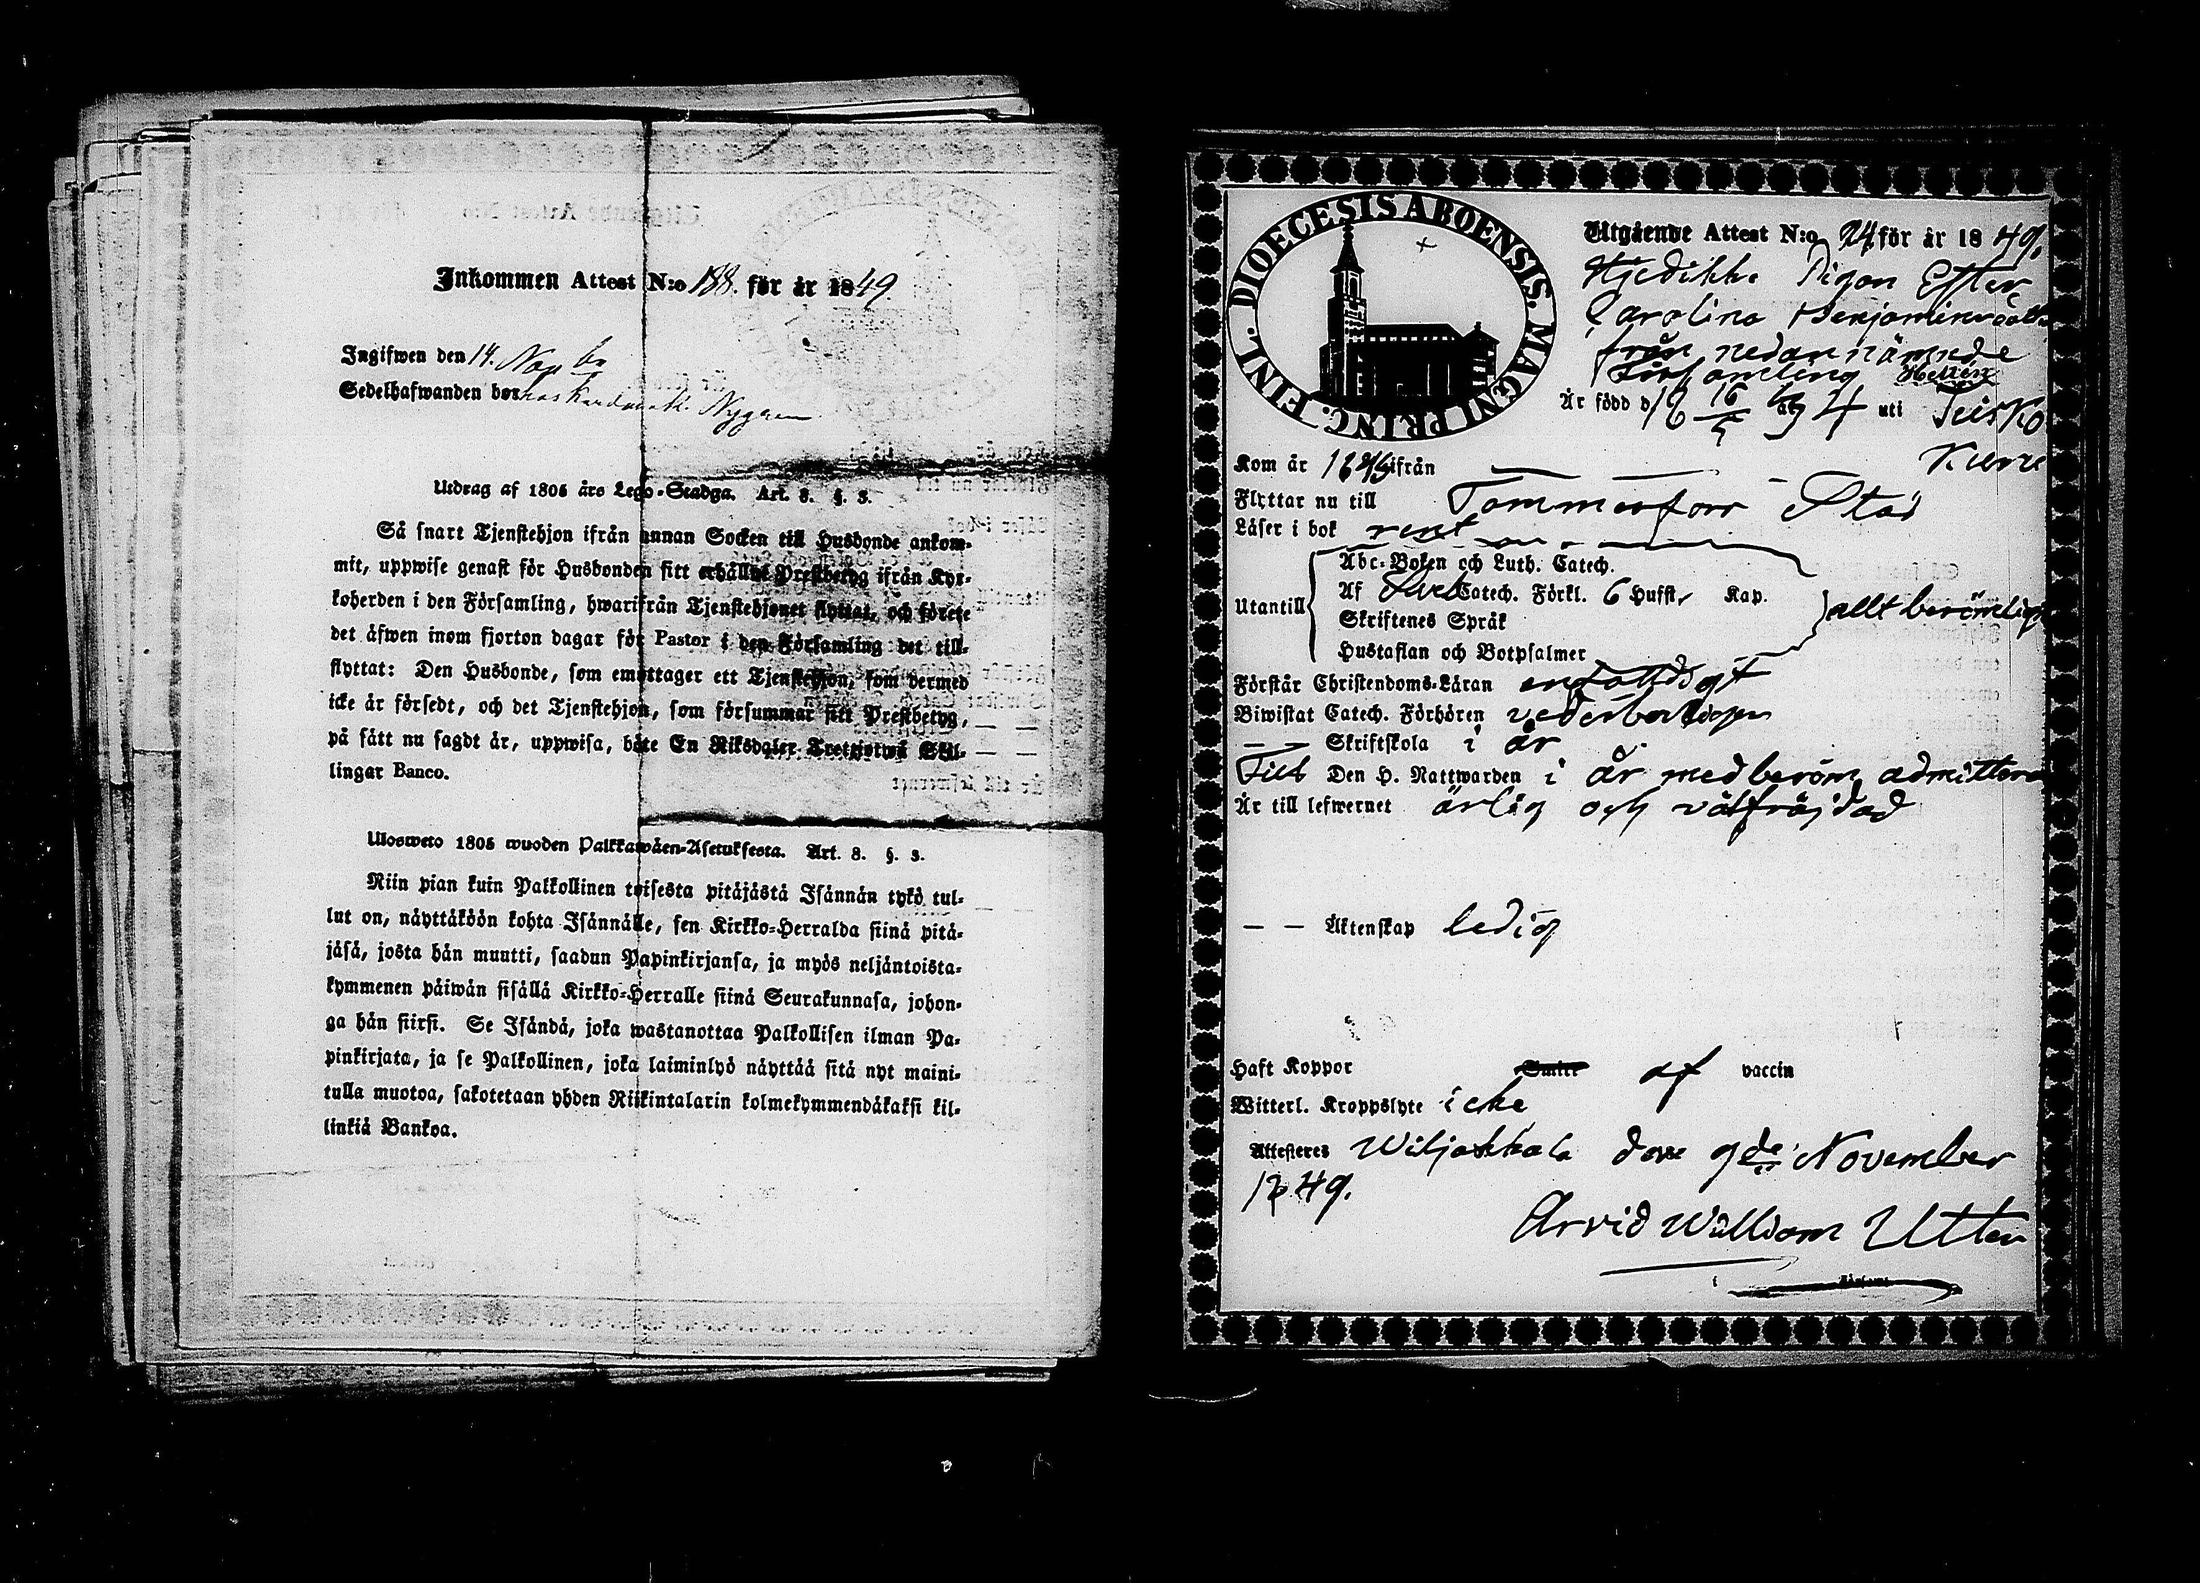 Inkommen Attest N:o 188. för år 1849.
Ingifwen den 14. Novbr
Sedelhafwanden bor hos Nygren
Utdrag af 1805 års Lego-Stadga. Art. 8. §. 3.
Så snart Tjenstehjon ifrån annan Socken till Husbonde ankom-
mit, uppwise genast för Husbonden sitt erhållne Prestbetyg ifrån Kyr-
koherden i den Församling, hwarifrån Tjenstehjonet flyttat, och förete
det äfwen inom fjorton dagar för Pastor i den Församling det till-
flyttat: Den Husbonde, som emottager ett Tjenstehjon, som dermed
icke är försedt, och det Tjenstehjon, som försummar sitt Prestbetyg,
på sätt nu sagdt är, uppwisa, böte En Riksdaler Trettiotwå Skil-
lingar Banco.
Ulosweto 1805 wuoden Palkkawäen-Asetuksesta. Art. 8. §. 3.
Niin pian kuin Palkollinen toisesta pitäjästä Isännän tykö tul-
lut on, näyttäköön kohta Isännälle, sen Kirkko-Herralda siinä pitä-
jäsä, josta hän muutti, saadun Papinkirjansa, ja myös neljäntoista-
kymmenen päiwän sisällä Kirkko-Herralle siinä Seurakunnasa, johon-
ga hän siirsi. Se Isändä, joka wastanottaa Palkollisen ilman Pa-
pinkirjata, ja se Palkollinen, joka laiminlyö näyttää sitä nyt maini-
tulla muotoa, sakotetaan yhden Riikintalarin kolmekymmendäkaksi kil-
linkiä Bankoa.
FINL. DIOECESIS ABOENSIS. MAGNI PRINC.
Utgående Attest N:o 24 för år 1849.
Pigan Ester
Carolina Benjaminsdotter
från nedannämnde
Församling
Är född d 16/5 34 uti Teisko
Kuru
Kom år 1845 ifrån —
Flyttar nu till Tammerfors Stad
Läser i bok rent
Utantill
Abc-Boken och Luth. Catech.
Af Catech. Förkl. 6 Hufst. Kap.
Skriftenes Språk
Hustaflan och Botpsalmer
allt berömligt
Förstår Christendoms-Läran enfaldigt
Biwistat Catech. Förhören vederbörligen
— — Skriftskola i år
Till Den H. Nattwarden i år med beröm admitterad
Är till lefwernet ärlig och välfräjdad
— — Äktenskap ledig
Haft Koppor af vaccin
Witterl. Kroppslyte icke
Attesteres Wiljakkala den 9de November
1849.
Arvid William Utter